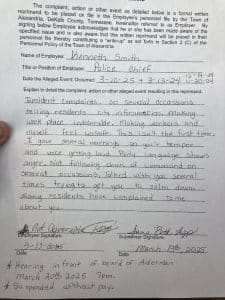 The complaint, action or other event as detailed below is a formal written
reprimand to be placed on file in the Employee's personnel file by the Town of
Alexandria, DeKalb County, Tennessee, hereinafter referred to as Employer. By
signing below Employee acknowledges that he or she has been made aware of the
specified issue and is also aware that this written reprimand will be placed in their
personnel file thereby constituting a "write-up" as set forth in Section 3 (C) of the
Personnel Policy of the Town of Alexandria.
Name of Employee: Kenneth Smith
Title or Position of Employee: Police Chief
Date the Alleged Event Occurred: 3-10-25 + 3-13-24
Explain in detail the complaint, action or other alleged event resulting in this reprimand.
Resident complaints on several occassions
telling residents city information. Making
work place intolerable. Making workers and
myself feel unsafe. This isn't the first time.
I gave several warnings on your temper
and voice getting loud. Body language shows
anger. Not following chain of command on
several occasions. Talked with you several
times trying to get you to calm down.
Many residents have complained to me
about you.
Employee Signature
Supervisor Signature
3-13-2025
March 13th, 2025
Date
Date
* Hearing in front of board of Alderman
March 20th 2025 7pm.
* Suspended without pay.